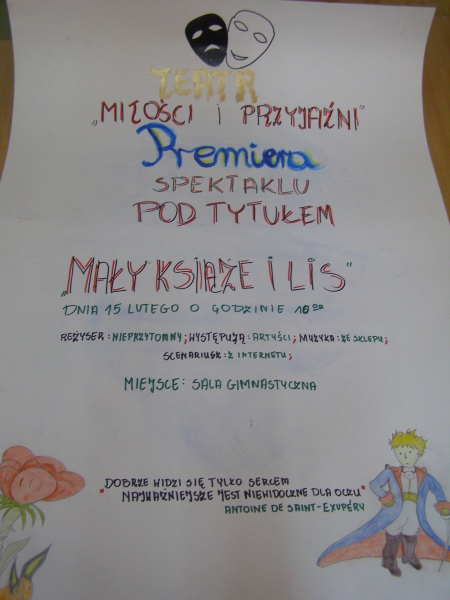 TEATR
„MIŁOŚCI I PRZYJAŹNI"
Premiera
SPEKTAKLU
POD TYTUŁEM
„MAŁY KSIĄŻE I LIS"
DNIA 15 LUTEGO O GODZINIE 10⁰⁰
REŻYSER: NIEPRZYTOMNY; WYSTĘPUJĄ: ARTYŚCI; MUZYKA: ZE SKLEPU;
SCENARIUSZ: Z INTERNETU;
MIEJSCE: SALA GIMNASTYCZNA
"DOBRZE WIDZI SIĘ TYLKO SERCEM
NAJWAŻNIEJSZE JEST NIEWIDOCZNE DLA OCZU"
ANTOINE DE SAINT-EXUPÉRY